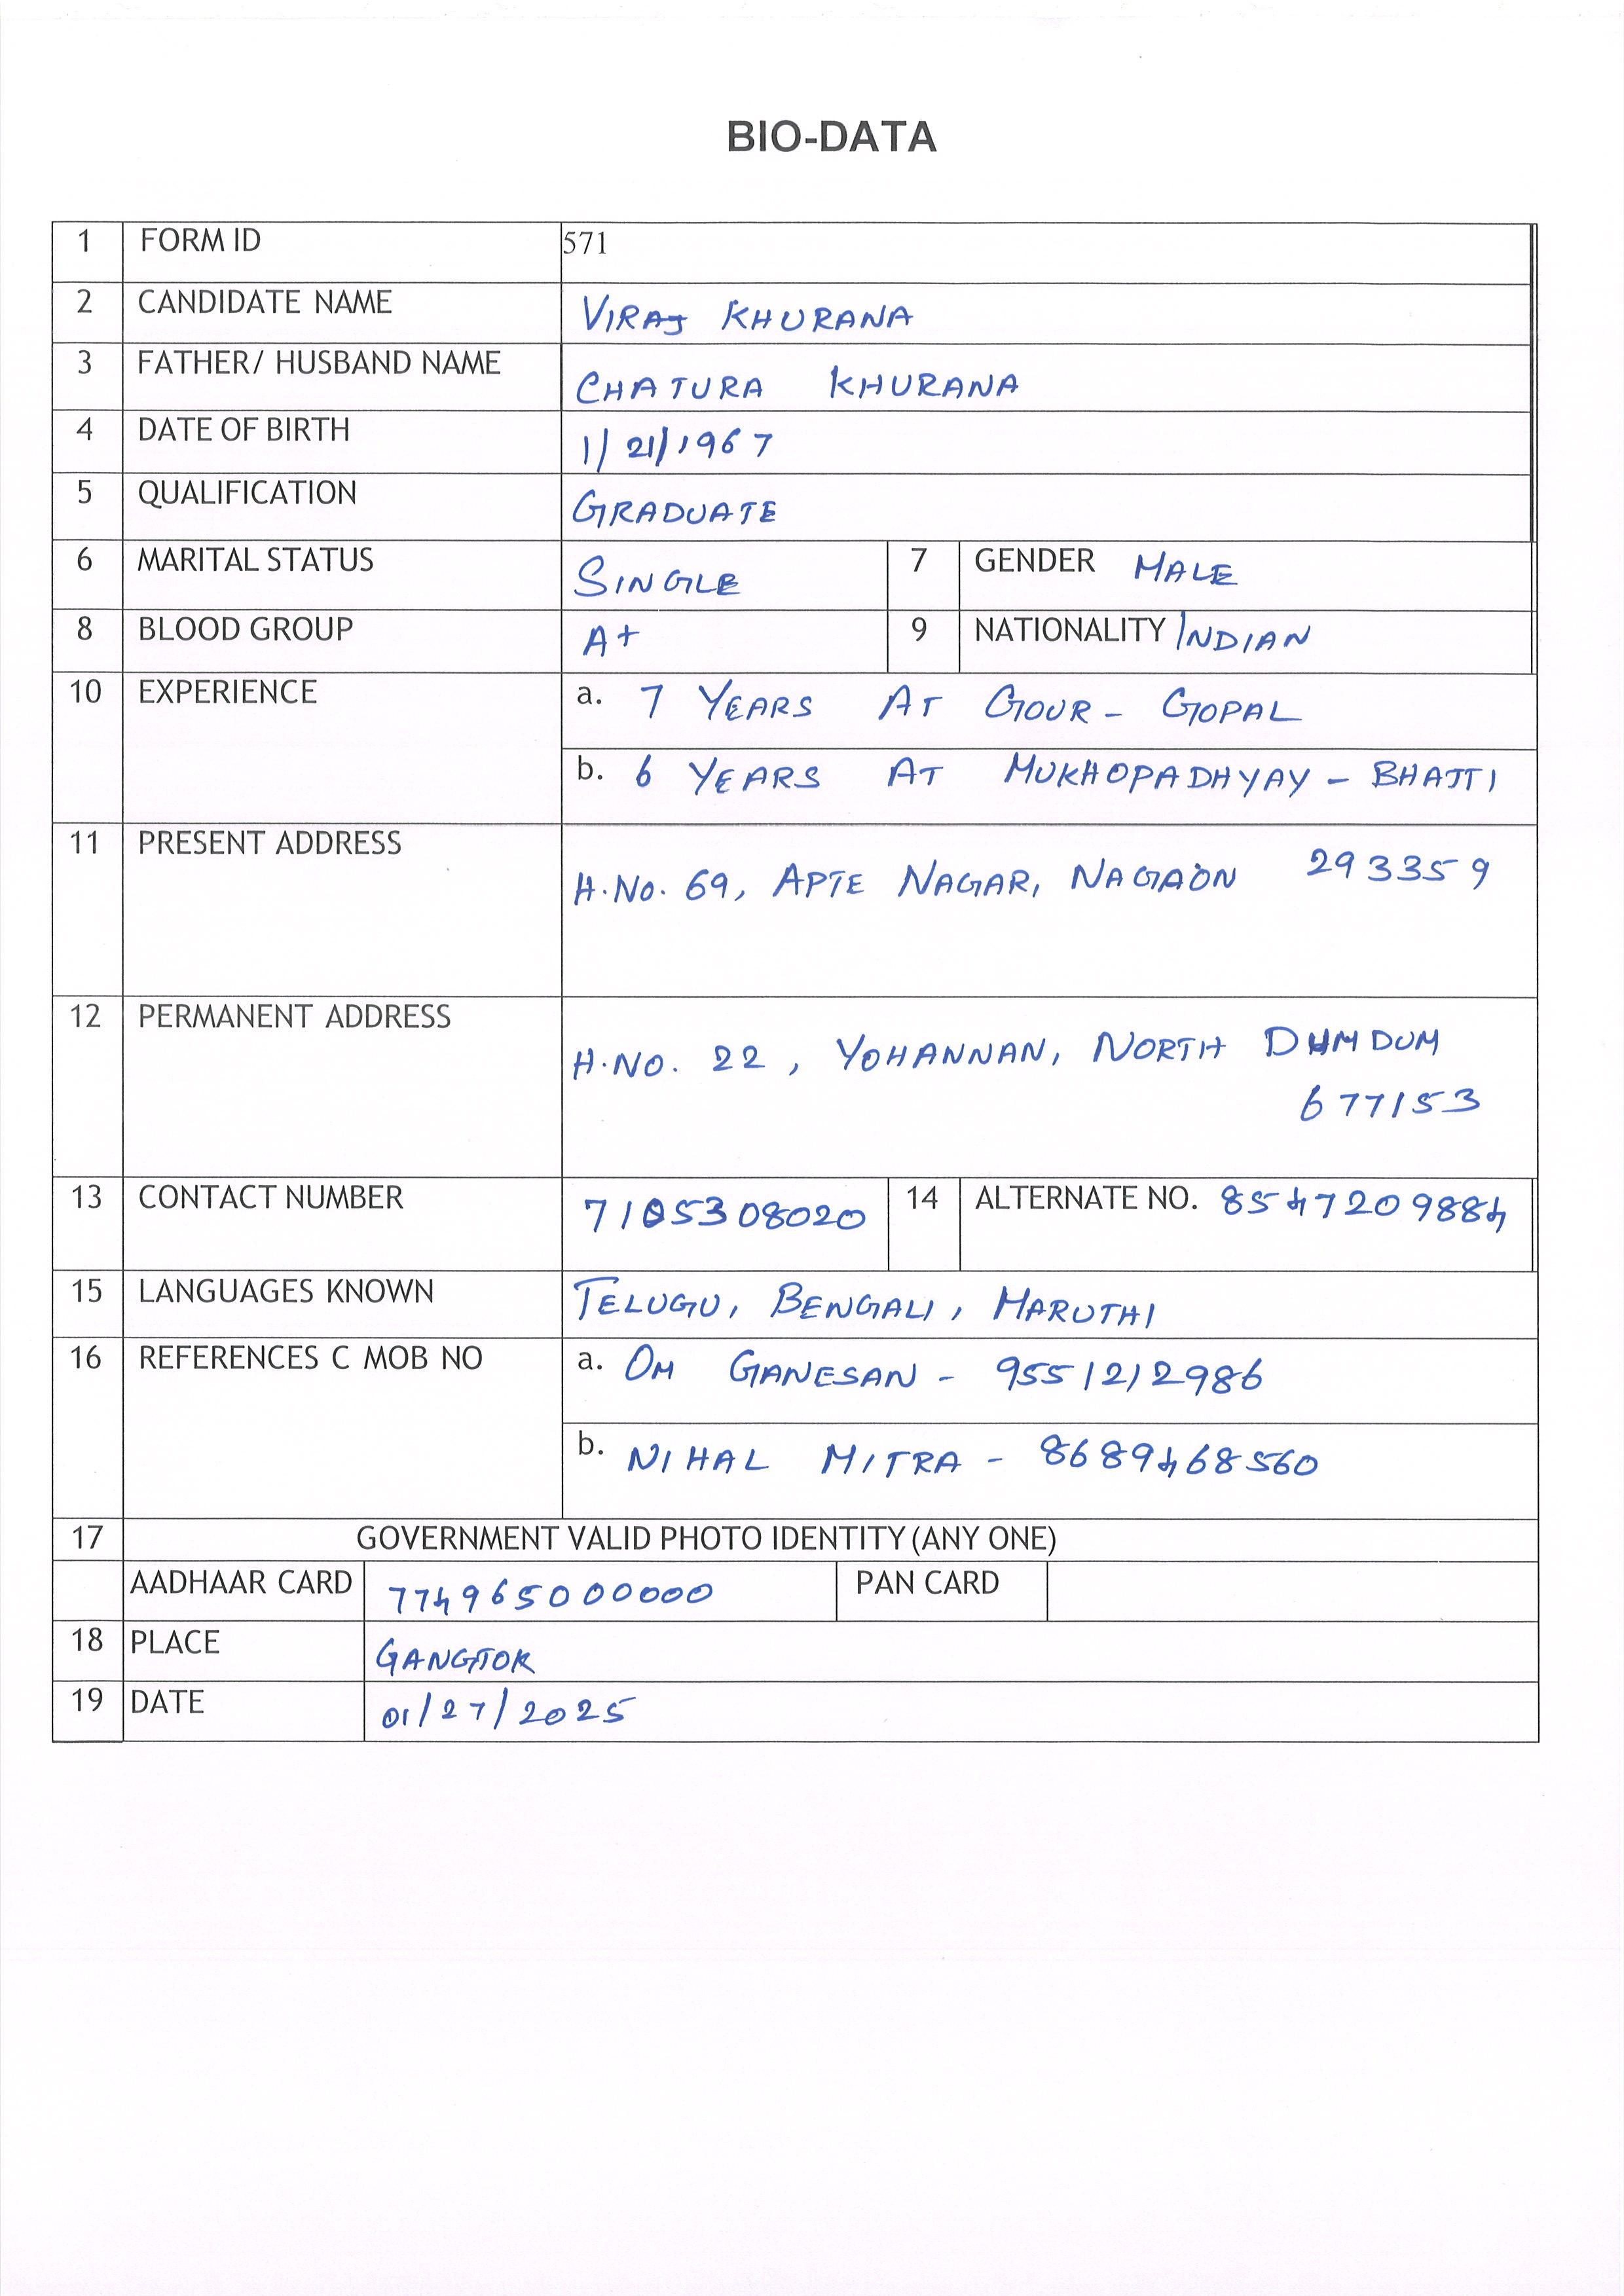 BIO-DATA
1 FORM ID 571
2 CANDIDATE NAME VIRAJ KHURANA
3 FATHER/ HUSBAND NAME CHATURA KHURANA
4 DATE OF BIRTH 1/21/1967
5 QUALIFICATION GRADUATE
6 MARITAL STATUS SINGLE 7 GENDER MALE
8 BLOOD GROUP A+ 9 NATIONALITY INDIAN
10 EXPERIENCE a. 7 YEARS AT GOUR - GOPAL
b. 6 YEARS AT MUKHOPADHYAY - BHATTI
11 PRESENT ADDRESS
H.NO. 69, APTE NAGAR, NAGAON 293359
12 PERMANENT ADDRESS
H.NO. 22, YOHANNAN, NORTH DUMDUM
677153
13 CONTACT NUMBER 7105308020 14 ALTERNATE NO. 8547209884
15 LANGUAGES KNOWN TELUGU, BENGALI, MARUTHI
16 REFERENCES C MOB NO a. OM GANESAN - 9551212986
b. NIHAL MITRA - 8689468560
17 GOVERNMENT VALID PHOTO IDENTITY (ANY ONE)
AADHAAR CARD 774965000000 PAN CARD
18 PLACE GANGTOK
19 DATE 01/27/2025